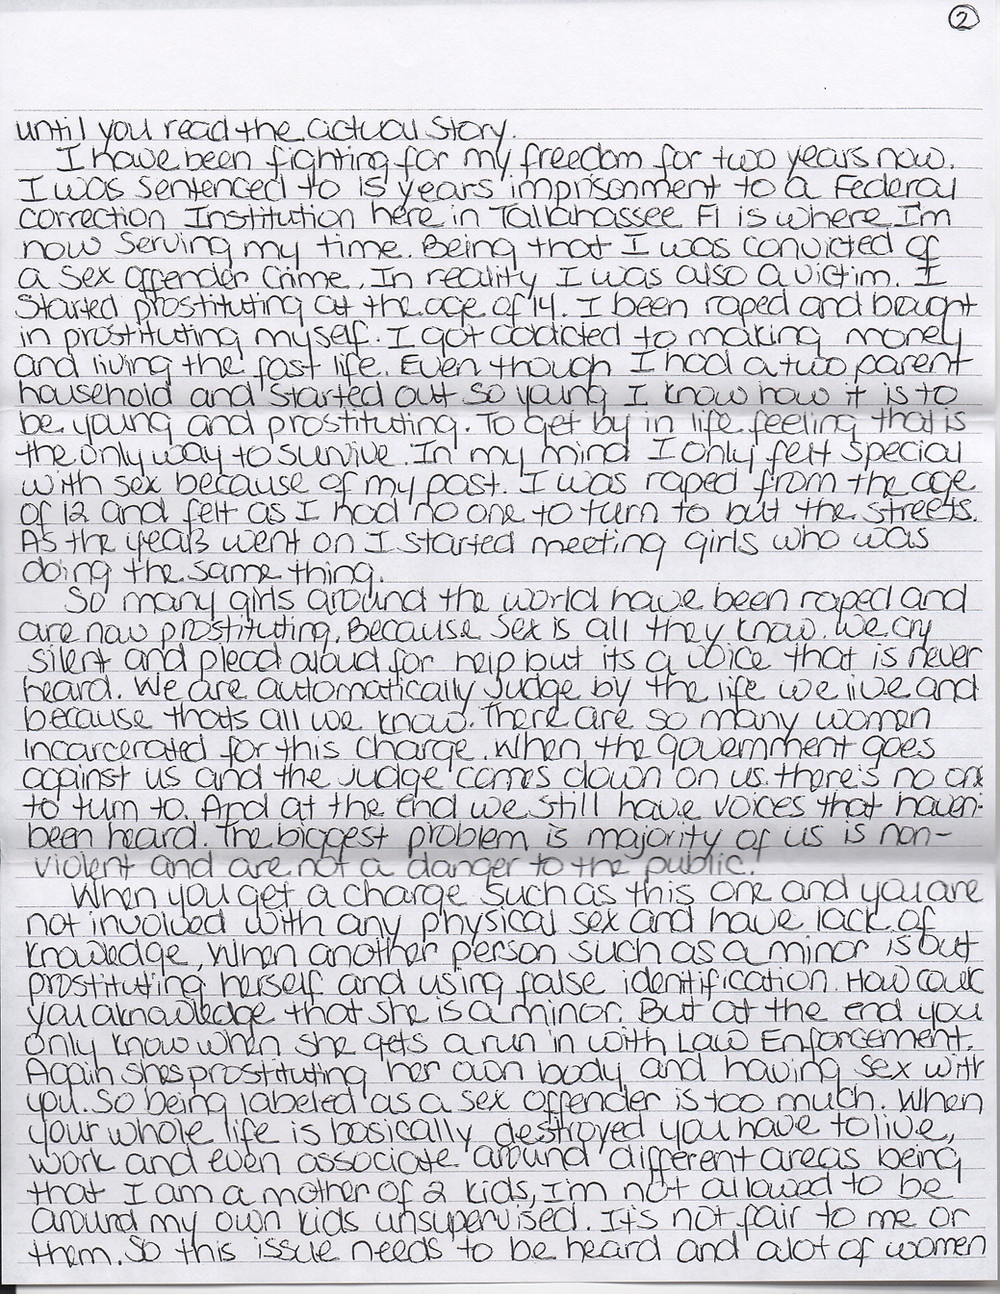 2
until you read the actual story.
I have been fighting for my freedom for two years now.
I was sentenced to 15 years imprisonment to a Federal
correction Institution here in Tallahassee Fl is where I'm
now serving my time. Being that I was convicted of
a sex offender crime. In reality I was also a victim. I
started prostituting at the age of 14. I been raped and bought
in prostituting myself. I got addicted to making money
and living the fast life. Even though I had a two parent
household and started out so young I know how it is to
be young and prostituting. To get by in life feeling that is
the only way to survive. In my mind I only felt special
with sex because of my past. I was raped from the age
of 12 and felt as I had no one to turn to but the streets.
As the years went on I started meeting girls who was
doing the same thing.
So many girls around the world have been raped and
are now prostituting. Because sex is all they know. We cry
silent and plead aloud for help but its a voice that is never
heard. We are automatically judge by the life we live and
because thats all we know. There are so many women
incarcerated for this charge. When the government goes
against us and the judge comes down on us there's no one
to turn to. And at the end we still have voices that haven't
been heard. The biggest problem is majority of us is non-
violent and are not a danger to the public.
When you get a charge such as this one and you are
not involved with any physical sex and have lack of
knowledge, when another person such as a minor is out
prostituting herself and using false identification. How could
you aknowledge that she is a minor. But at the end you
only know when she gets a run in with Law Enforcement.
Again shes prostituting her own body and having sex with
you. So being labeled as a sex offender is too much. When
your whole life is basically destroyed you have to live,
work and even associate around different areas being
that I am a mother of 2 kids, I'm not allowed to be
around my own kids unsupervised. It's not fair to me or
them. So this issue needs to be heard and alot of women